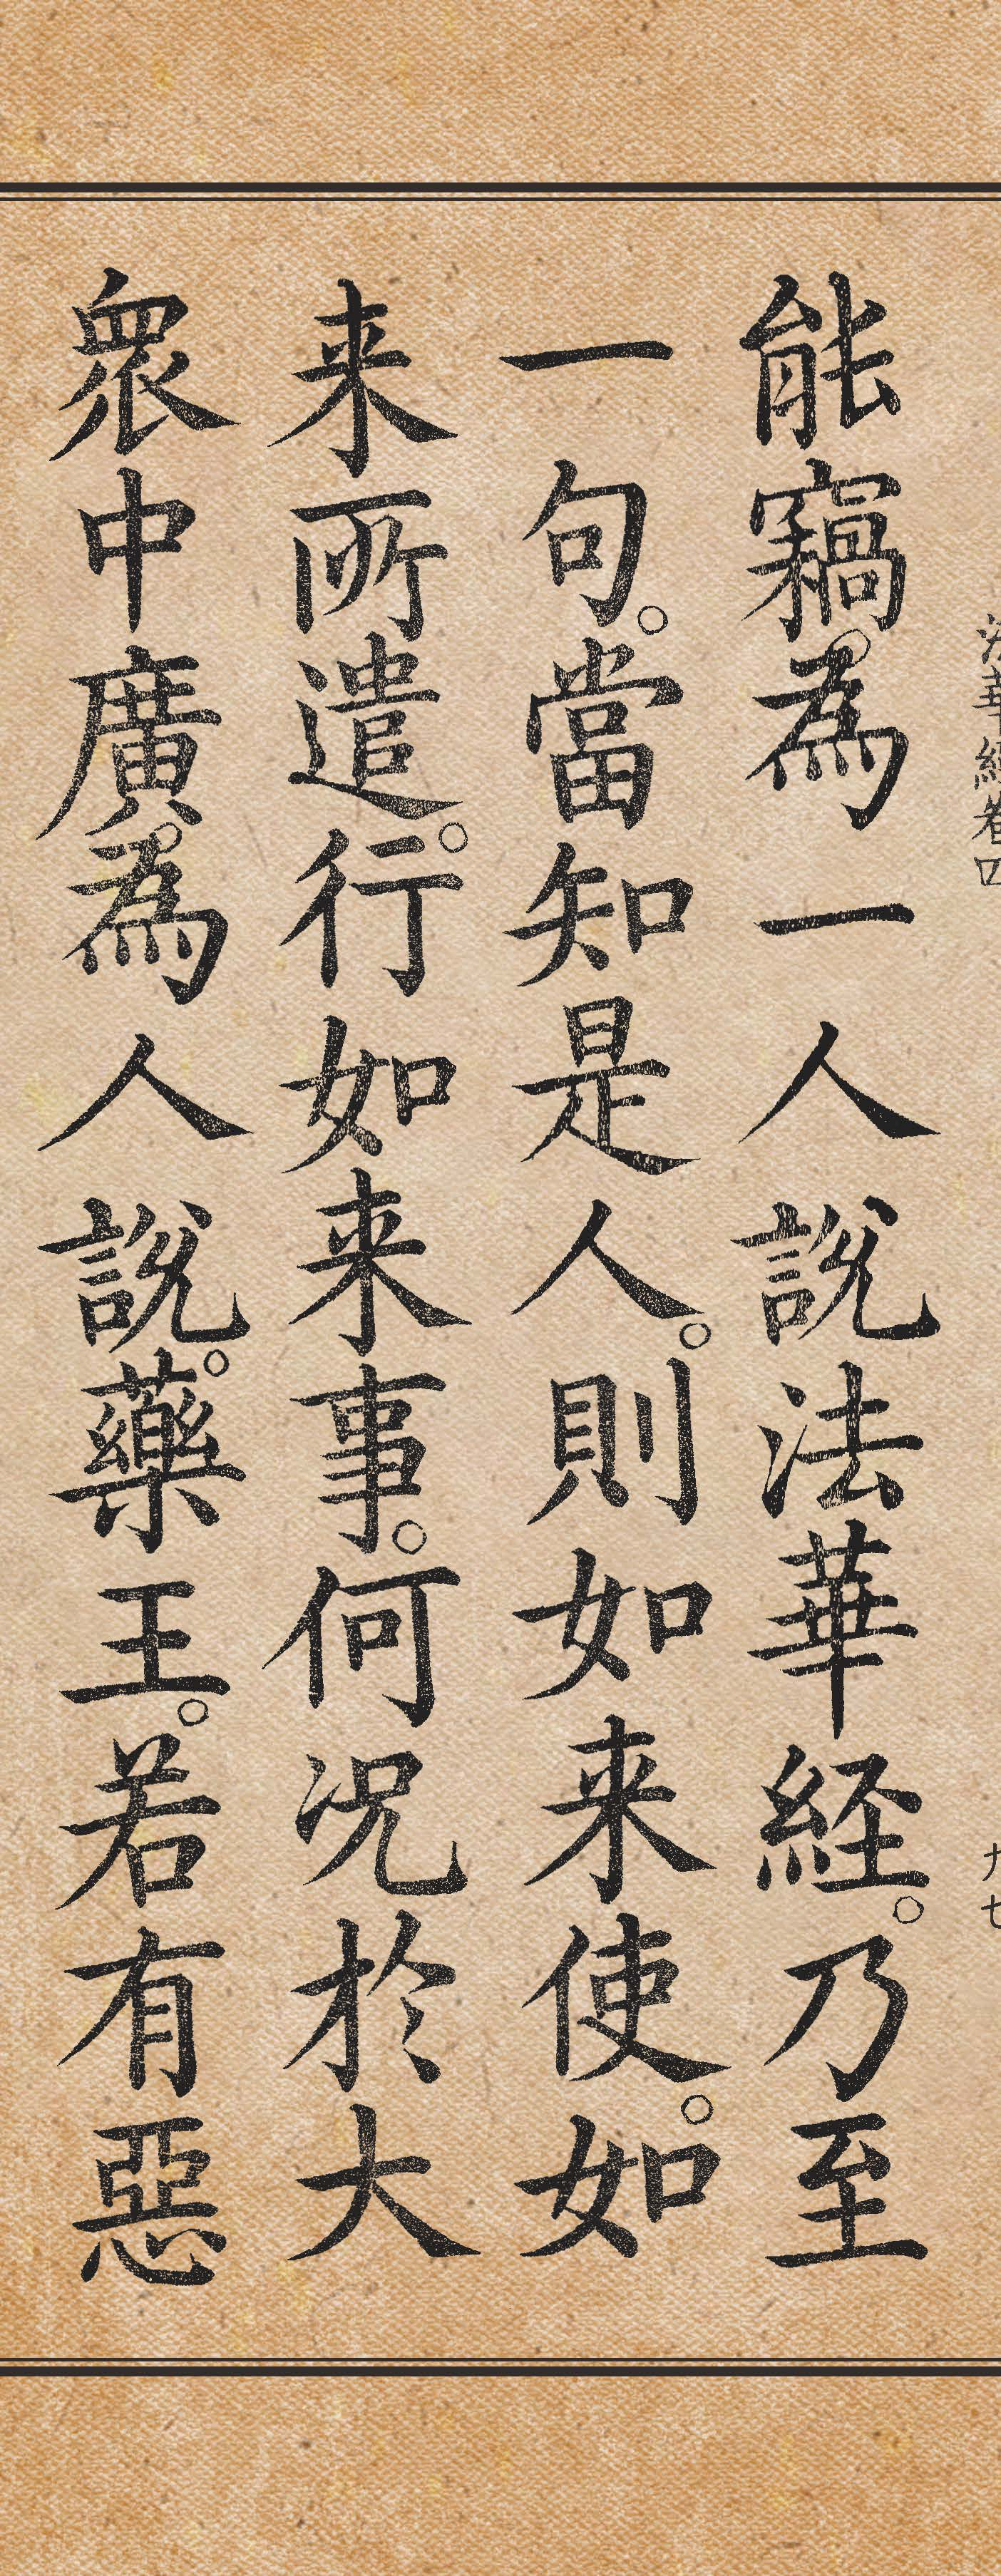 法華經卷四 九七
能竊為一人說法華経。乃至
一句。當知是人。則如来使。如
来所遣。行如来事。何况於大
衆中廣為人說。藥王。若有惡